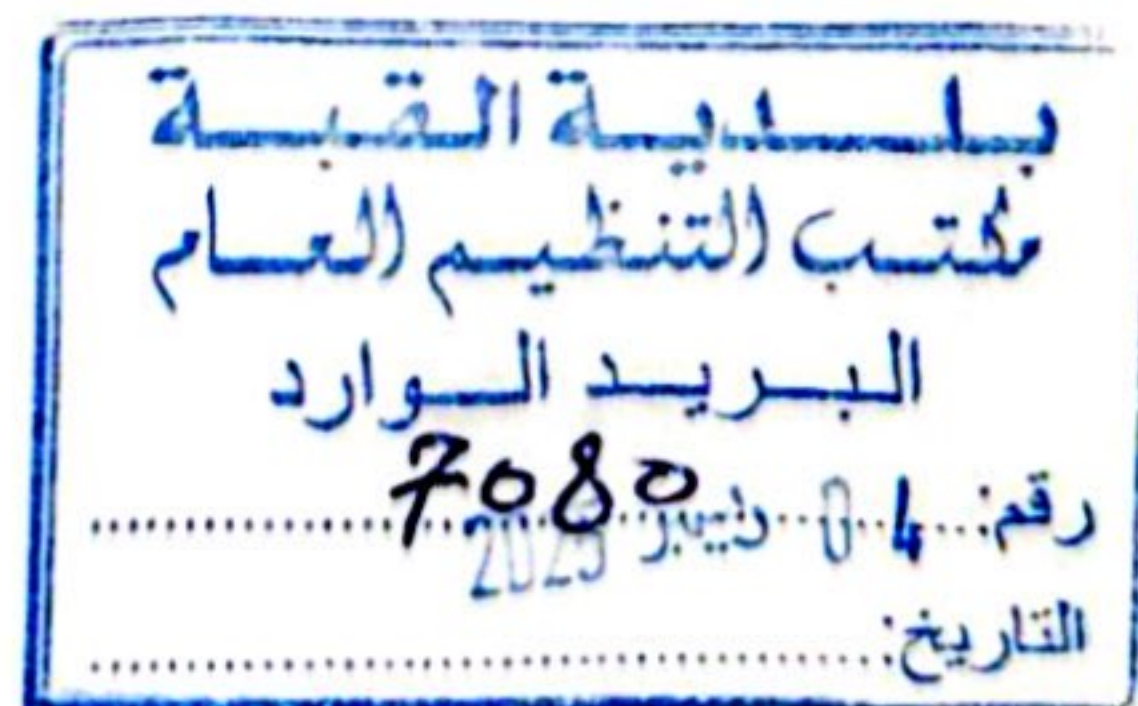 بلدية القبة
مكتب التنظيم العام
البريد الوارد
رقم: 7080
04 2025
التاريخ: